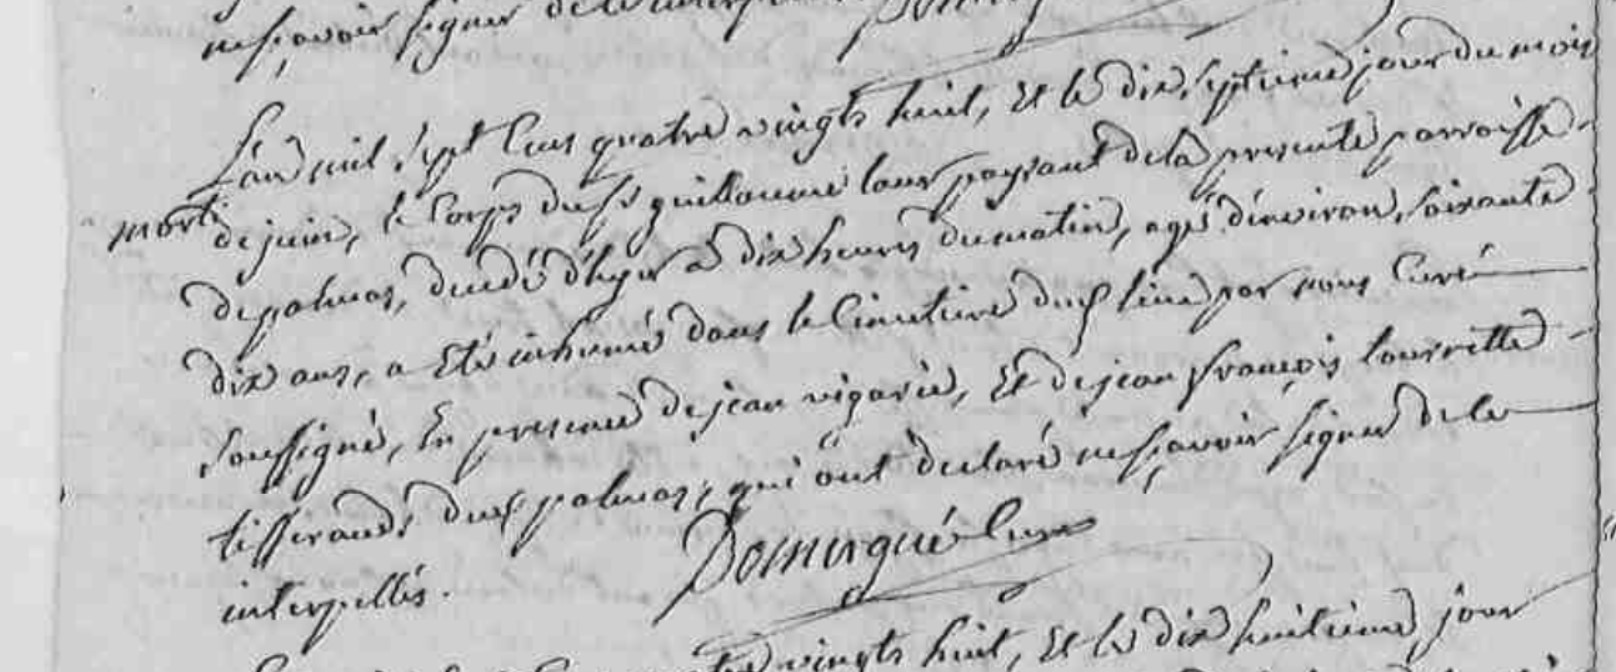 ne sçavoir signer de ce interpellés
L'an mil sept cens quatre vingts huit, et le dix septieme jour du mois
mort de juin, le corps du sr guillaume laur paysant de la presente parroisse
de palmas, decedé d'hyer à dix heures du matin, agé d'environ soixante
dix ans, a eté inhumé dans le cimetiere dud. lieu par nous curé
soussigné, en presence de jean vigarié, et de jean françois lourrette
tisserands dud. palmas, qui ont declaré ne sçavoir signer de ce
interpellés.
Domergue curé
vingts huit, et le dix huitieme jour